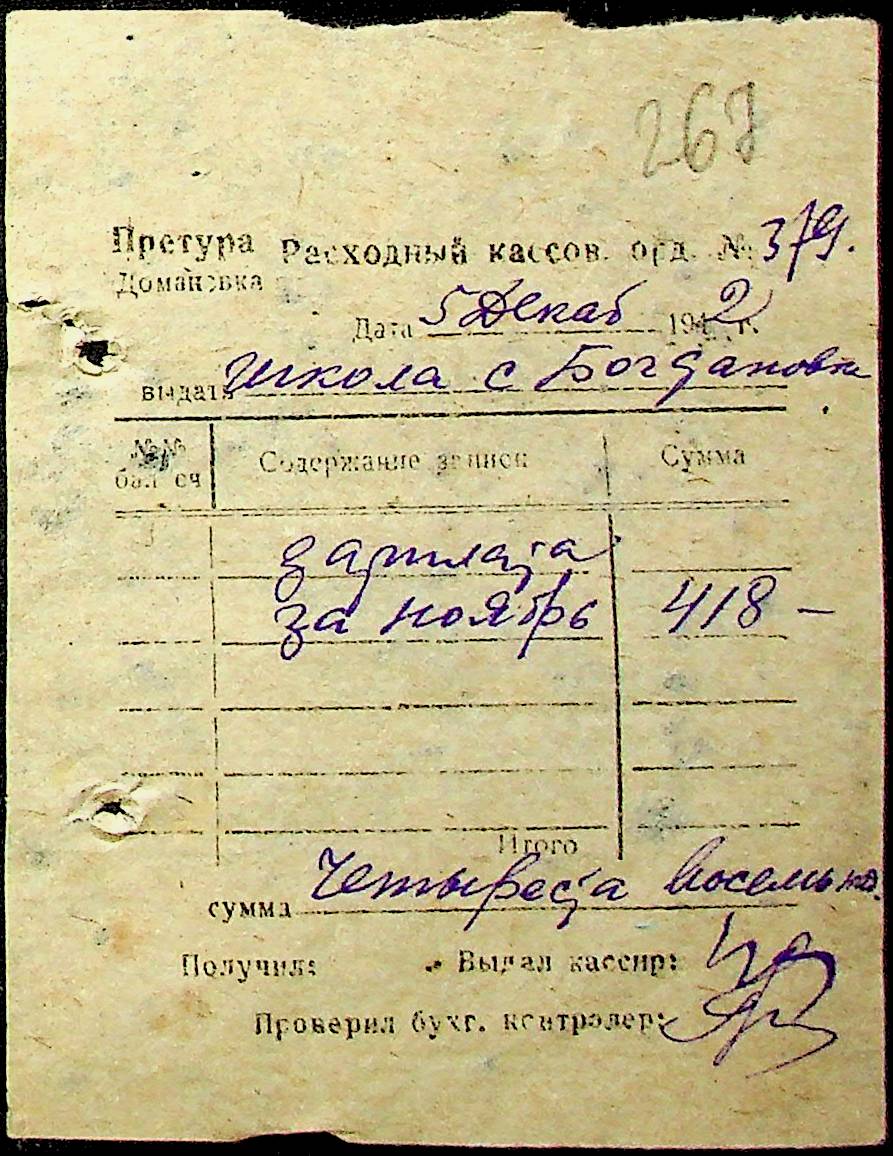 267
Претура Расходный кассов. орд. № 379.
Домановка
Дата 5 Декаб 1942 г.
выдать Школа с Богдановка
№№ бал сч Содержание записи Сумма
зарплата
за ноябрь 418 —
Итого
сумма Четыреста восемьнад.
Получил: Выдал кассир:
Проверил бухг. контролер: